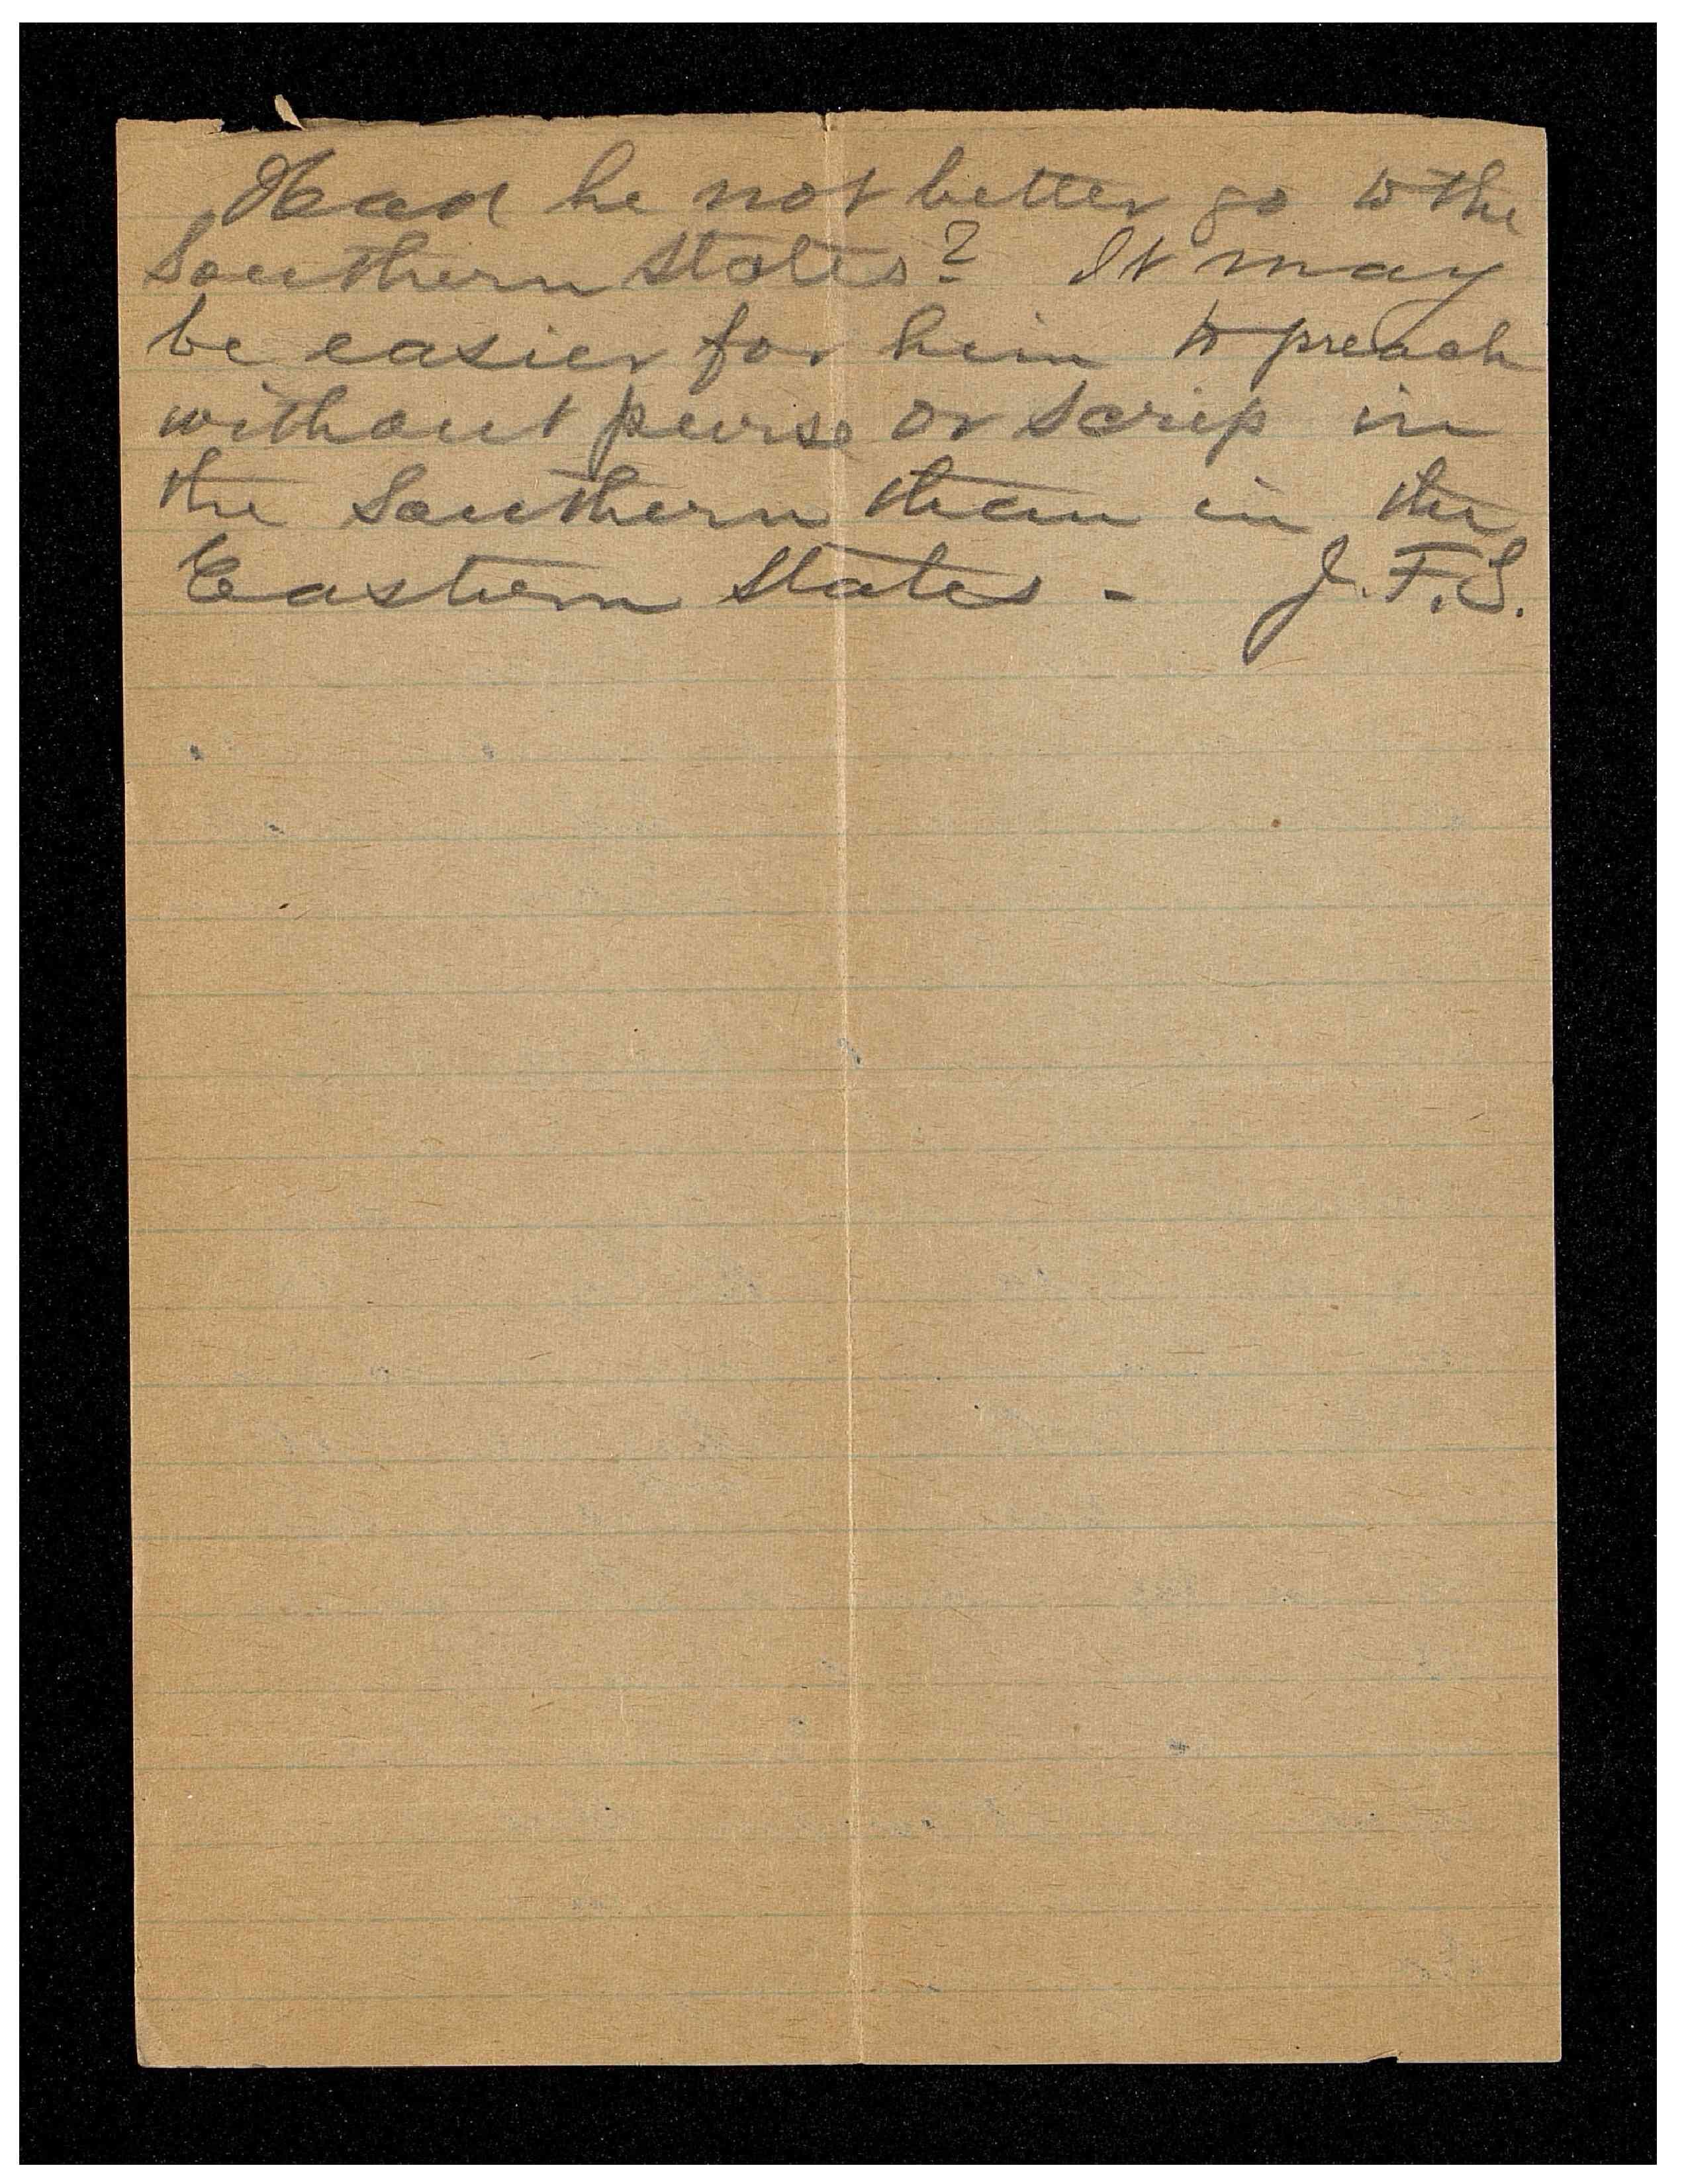 Had he not better go to the
Southern States? It may
be easier for him to preach
without purse or scrip in
the Southern than in the
Eastern States - J. F. S.